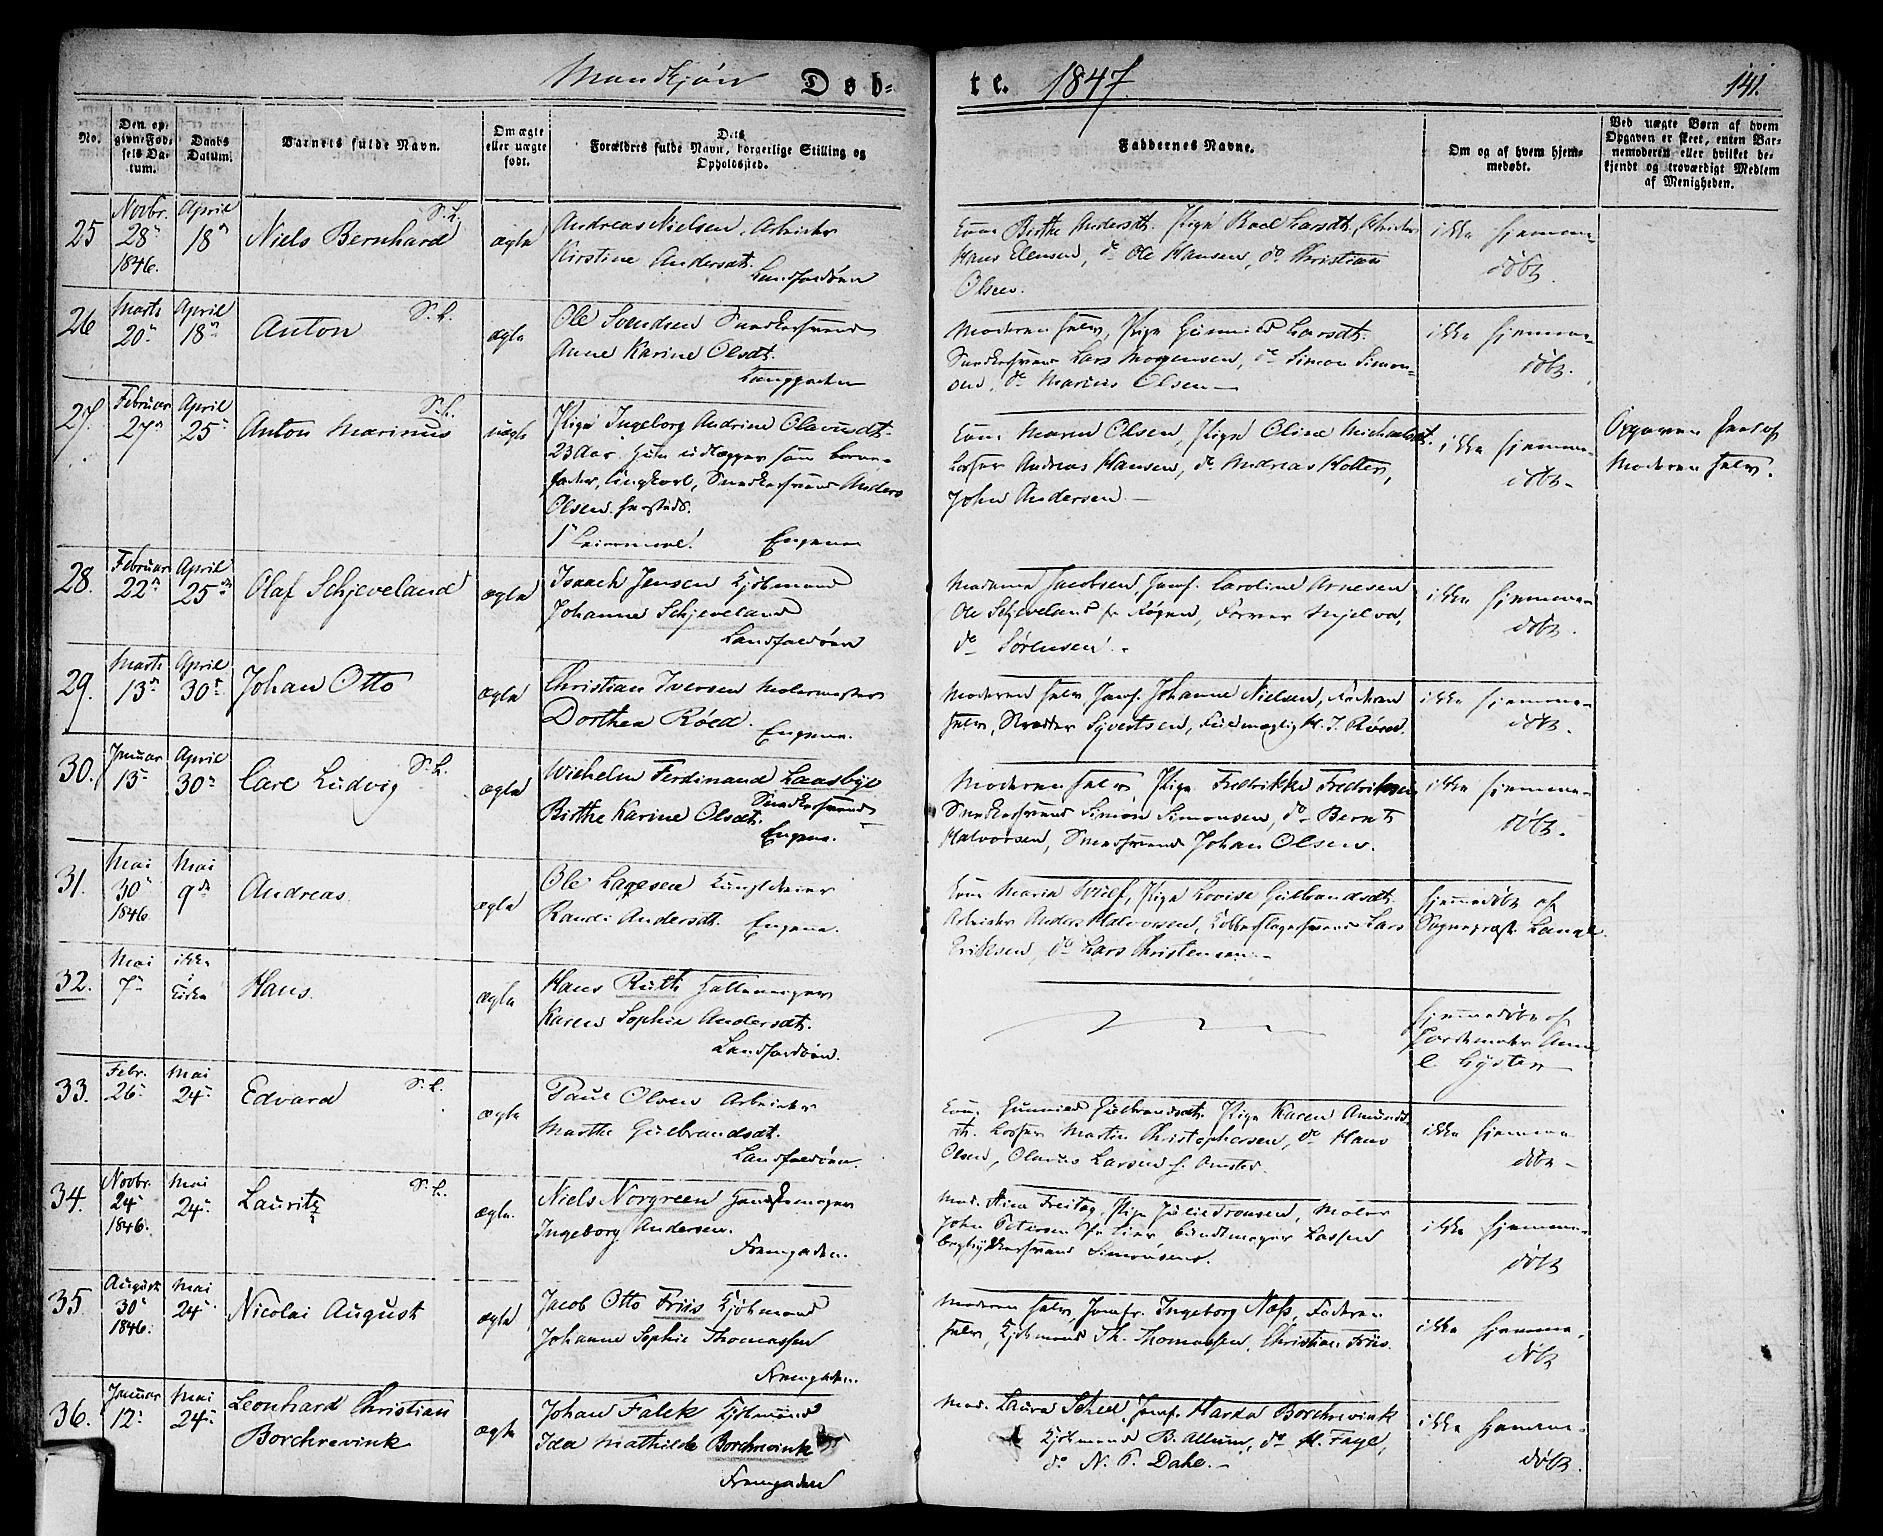 Mandkjøn Døb=
te. 1847. 141.
No.
Den op=
givne Fød=
sels Da=
tum.
Daabs
Datum.
Barnets fulde Navn.
Om ægte
eller uægte
født.
Dets
Forældres fulde Navn, borgerlige Stilling og
Opholdssted.
Faddernes Navne.
Om og af hvem hjem=
medøbt.
Ved uægte Børn af hvem
Opgaven er skeet, enten Bar=
nemoderen eller hvilket be=
kjendt og troværdigt Medlem
af Menigheden.
25
Novbr.
28
1846.
April
18
S. L.
Niels Bernhard
ægte
Andreas Nielsen, Arbeider
Kirstine Andersdt.
Landfaldøen
Kone Birthe Andersdt. Pige Larsdt, Arbeider
Hans Elensen, do Ole Hansen, do Christian
Olsen.
ikke hjemme=
døbt.
26
Marts
20
April
18
S. L.
Anton
ægte
Ole Svendsen Snedkersvend
Anne Karine Olsdt.
Langgaden
Moderen selv, Pige Gunnild Larsdt.
Snedkersvend Lars Mogensen, do Simon Simon=
sen, do Marius Olsen
ikke hjemme=
døbt.
27.
Februar
27
April
25
S. L.
Anton Marinus
uægte
Pige Ingeborg Andrine Olavesdt.
23 Aar. Hun udlægger som barne=
fader, Ungkarl, Snedkersvend Anders
Olsen
Leiermaal. Engene
Kone Maren Olsen, Pige Oline Michaelsdt.
Losser Andreas Hansen, do Andreas Holter,
John Andersen
ikke hjemme=
døbt.
Opgaven skeet af
Moderen selv.
28.
Februar
22
April
25
Olaf Schjeveland
ægte
Isaach Jensen Kjøbmand
Johanne Schjeveland
Landfaldøen
Madame Jacobsen, Jomf. Caroline Arnesen
Ole Schjeveland fr Røgen, Farver Mjelva,
do Sørensen.
ikke hjemme=
døbt.
29.
Marts
13
April
30
Johan Otto
ægte
Christian Iversen Malermester
Dorthea Röed.
Engene.
Moderen selv, Jomf. Johanne Nielsen, Faderen
selv, Skrædder Syvertsen, Fuldmægtig H. J. Röed.
ikke hjemme=
døbt.
30.
Januar
15
April
30
S. L.
Carl Ludvig
ægte
Wilhelm Ferdinand Laasbye
Snedkersvend
Birthe Karine Olsdt.
Engene.
Moderen selv, Pige Fredrikke Fredriksen
Snedkersvend Simon Simonsen, do Bernt
Halvorsen, Smedsvend Johan Olsen.
ikke hjemme=
døbt.
31.
Mai
30
1846.
Mai
9
Andreas.
ægte
Ole Lagesen
Randi Andersdt.
Engene.
Kone Maria Pige Lovise Gulbrandsdt.
Arbeider Anders Halvorsen, Kobberslagersvend Lars
Eriksen, do Lars Christensen.
hjemmedøbt af
Sogneprest Lange.
32.
Mai
7
ikke
i
Kirke
Hans.
ægte
Hans Ruth
Karen Sophie Andersdt.
Landfaldøen.
hjemmedøbt af
Jordemoder Anne
C. Gysten
33.
Febr.
26
Mai
24
S. L.
Edvard
ægte
Paul Olsen Arbeider
Marthe Gulbrandsdt.
Landfaldøen.
Kone Gunnild Gulbrandsdt. Pige Karen Amunds
dt. Losser Martin Christophersen, do Hans
Olsen, Olavus Larsen
ikke hjemme
døbt
34.
Novbr.
24
1846.
Mai
24
S. L.
Lauritz
ægte.
Niels Norgreen Handskemager
Ingeborg Andersen.
Fremgaden.
Mad. Aine Freitag, Pige Julie Tronsen, Maler
John Petersen fr Lier, Buntmager Lassen
Simonsens.
ikke hjemme=
døbt
35.
August
30
1846.
Mai
24
Nicolai August
ægte
Jacob Otto Friis Kjøbmand
Johanne Sophie Thomassen
Fremgaden.
Moderen selv, Jomfr. Ingeborg Næss, Faderen
selv, Kjøbmand Th. Thomassen, Christian Friis.
ikke hjemme=
døbt
36.
Januar
12
Mai
24
Leonhard Christian
Borchrevink
ægte
Johan Falck Kjøbmand
Ida Mathilde Borchrevink
Fremgaden
Mad. Laura Scheel, Jomf. Marda Borchrevink
Kjøbmand B. Allum, do H. Faye,
do N. P. Dahl.
ikke hjemme=
døbt.